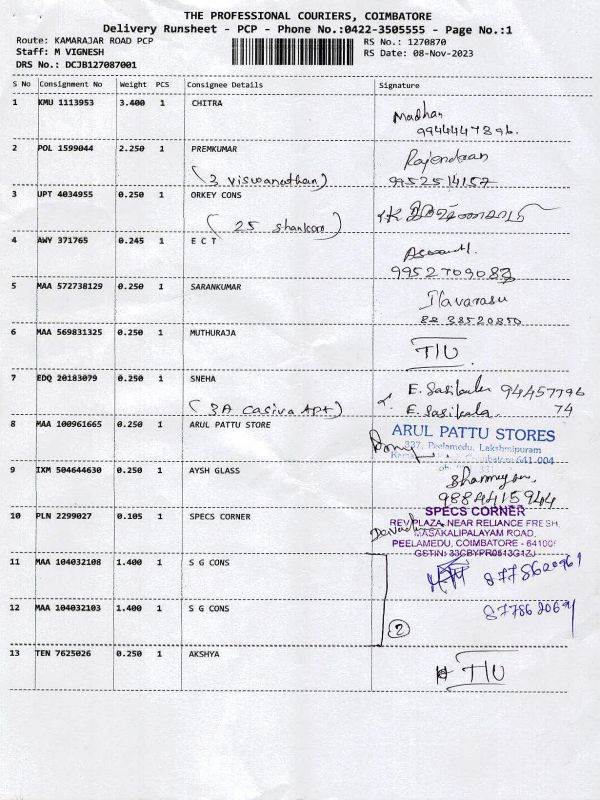 THE PROFESSIONAL COURIERS, COIMBATORE
Delivery Runsheet - PCP - Phone No.:0422-3505555 - Page No.:1
Route: KAMARAJAR ROAD PCP
Staff: M VIGNESH
DRS No.: DCJB127087001
RS No.: 1270870
RS Date: 08-Nov-2023
S No Consignment No Weight PCS Consignee Details Signature
1 KMU 1113953 3.400 1 CHITRA Madhan
9944447896.
2 POL 1599044 2.250 1 PREMKUMAR Rajendran
(2 viswanathan) 9952514157
3 UPT 4034955 0.250 1 ORKEY CONS
(25 Shankara)
4 AWY 371765 0.245 1 E C T
9952709083
5 MAA 572738129 0.250 1 SARANKUMAR Ilavarasu
88 33520850
6 MAA 569831325 0.250 1 MUTHURAJA T/U
7 EDQ 20183079 0.250 1 SNEHA E. Sasikala 94457796
(3A Casiva Apt) E. Sasikala. 74
8 MAA 100961665 0.250 1 ARUL PATTU STORE ARUL PATTU STORES
337, Peelamedu, Lakshmipuram
Coimbatore 641 004
9 IXM 504644630 0.250 1 AYSH GLASS
9884415944
10 PLN 2299027 0.105 1 SPECS CORNER SPECS CORNER
REV PLAZA, NEAR RELIANCE FRESH,
MASAKALIPALAYAM ROAD,
PEELAMEDU, COIMBATORE - 64100
GSTIN: 33CBYPR0513G1ZJ
11 MAA 104032108 1.400 1 S G CONS 8778620961
12 MAA 104032103 1.400 1 S G CONS
2
13 TEN 7625026 0.250 1 AKSHYA T/U